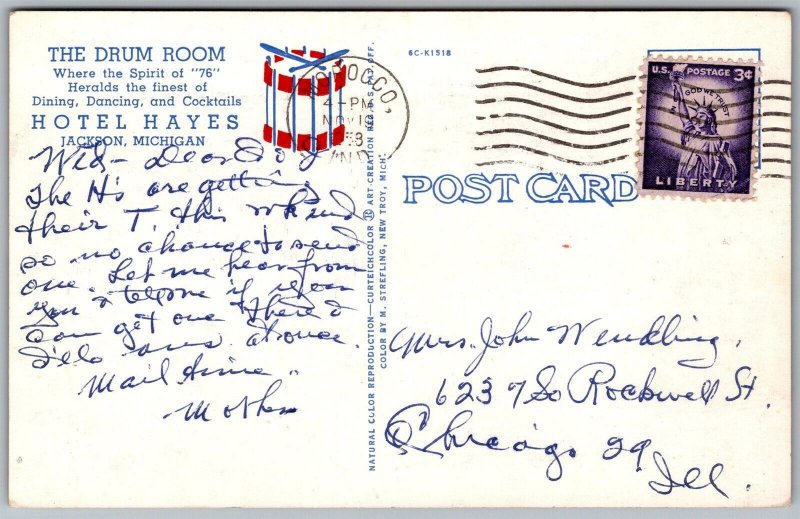 THE DRUM ROOM
Where the Spirit of "76"
Heralds the finest of
Dining, Dancing, and Cocktails
HOTEL HAYES
JACKSON, MICHIGAN
6C-K1518
MOROCCO,
4-PM
NOV 19
IND
U.S. POSTAGE 3¢
IN GOD WE TRUST
LIBERTY
POST CARD
NATURAL COLOR REPRODUCTION—CURTEICHCOLOR ® ART-CREATION REG. U.S. PAT. OFF.
COLOR BY M. STREFLING, NEW TROY, MICH.
Wed - Dear
The H's are getting
their T. this
so no chance to send
one. Let me hear from
you & tell me if you
can get one there &
I'll at once.
Mail time
-Mother
Mrs. John Wendling,
6237 So Rockwell St.
Chicago 29
Ill.